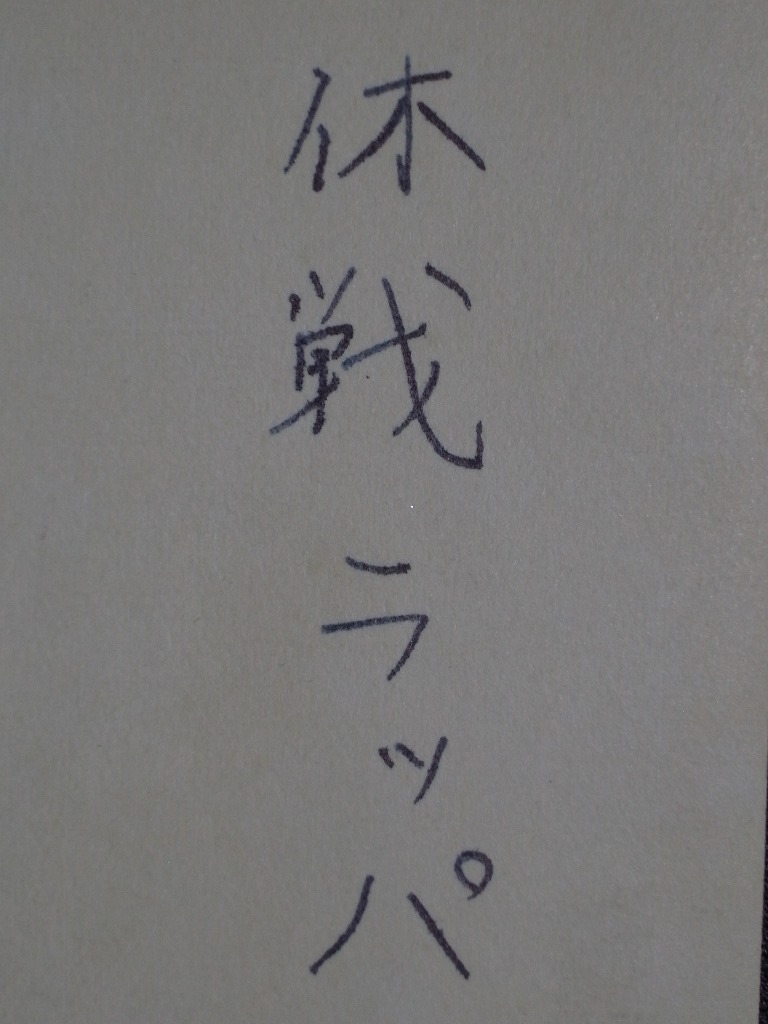 休戦ラッパ